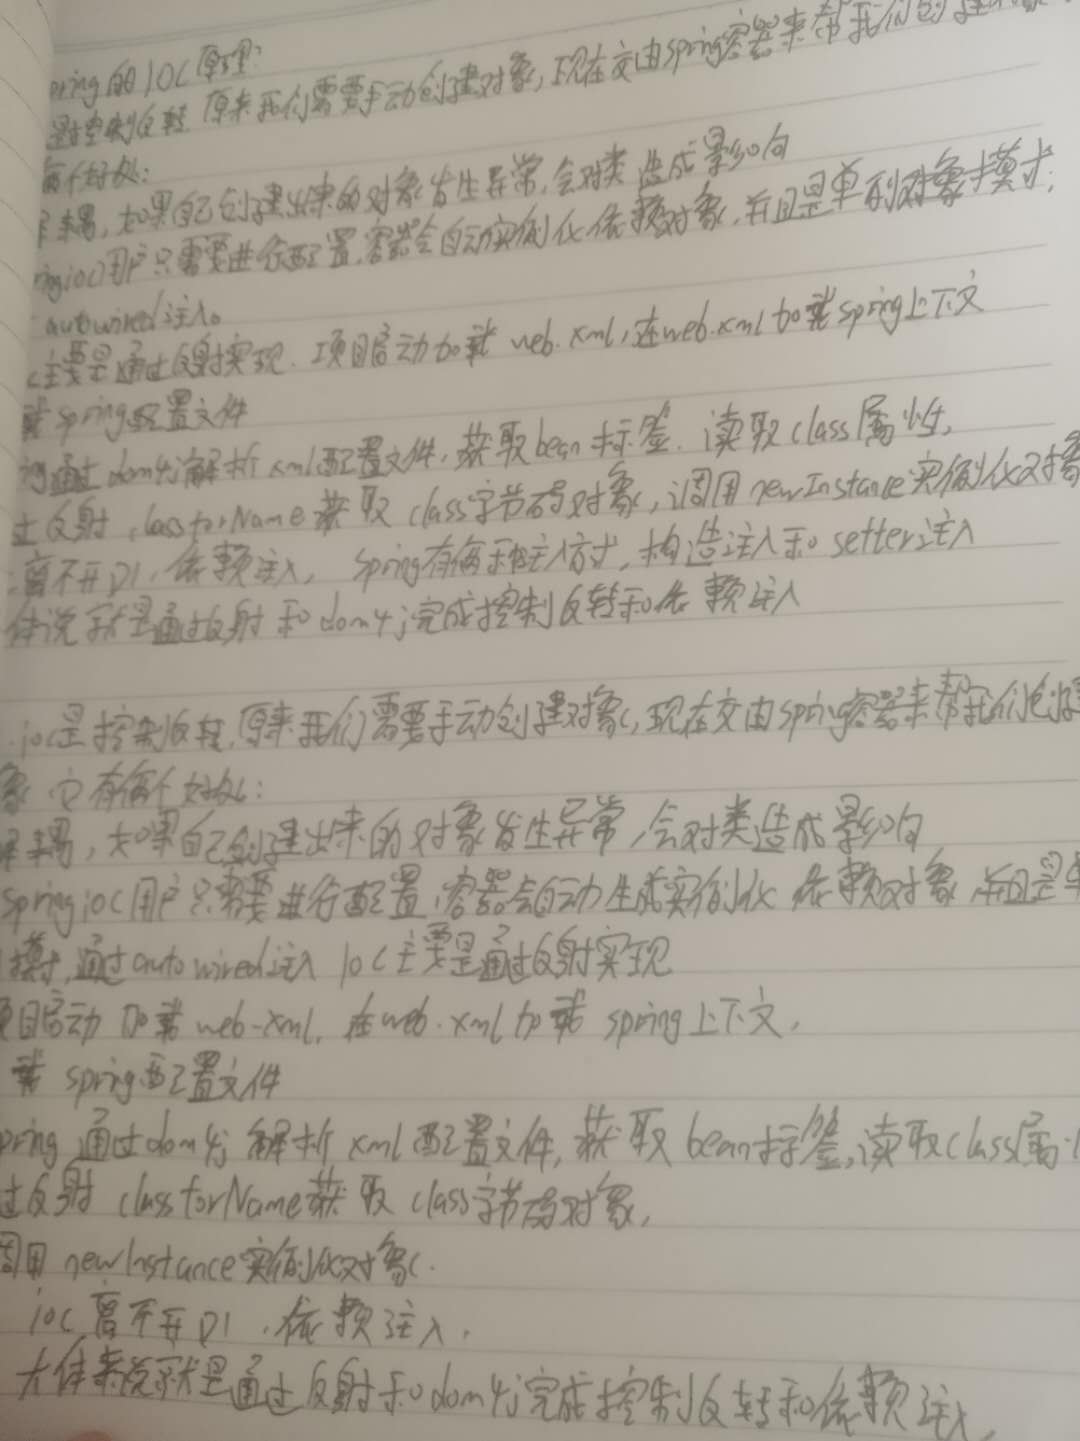 pring的IOC原理:
是控制反转 原来我们需要手动创建对象,现在交由spring容器来帮我们创建
有两个好处:
耦,如果自己创建出来的对象发生异常,会对类造成影响
ringioc用户只需要进行配置,容器会自动实例化依赖对象,并且是单例对象模式;
autowired注入。
c主要是通过反射实现.项目启动加载 web.xml,在web.xml加载spring上下文
载spring配置文件
ng通过dom4j解析xml配置文件,获取bean标签.读取class属性,
过反射classforName获取class字节码对象,调用newInstance实例化对象
离不开DI,依赖注入, spring有两种注入方式,构造注入和setter注入
体说就是通过反射和dom4j完成控制反转和依赖注入
ioc是控制反转,原来我们需要手动创建对象,现在交由spring容器来帮我们创建
象,它有两个好处:
解耦,如果自己创建出来的对象发生异常,会对类造成影响
springioc用户只需要进行配置,容器会自动生成实例化 依赖对象 并且是单
模式,通过autowired注入 IOC主要是通过反射实现
项目启动 加载 web-xml, 在web.xml加载 spring上下文,
载 spring配置文件
pring 通过dom4j 解析 xml配置文件, 获取 bean标签,读取class属
过反射 classforName获取 class字节码对象,
调用 newInstance实例化对象.
ioc离不开DI,依赖注入,
大体来说就是通过反射和dom4j完成控制反转和依赖注入,